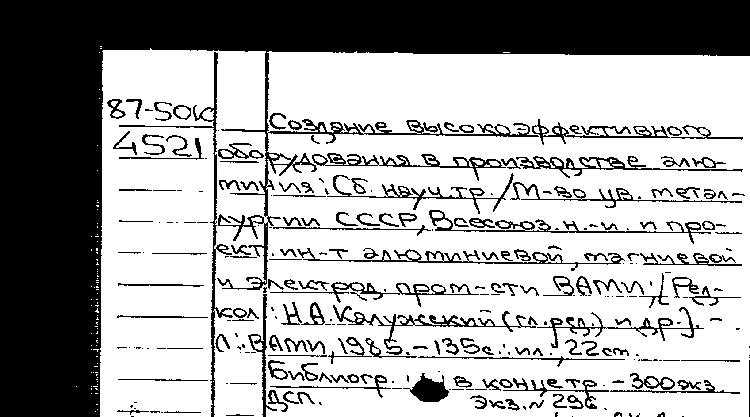 87-50K
4521
Создание высокоэффективного
оборудования в производстве алю-
миния: Сб. науч. тр. / М-во цв. метал-
лургии СССР, Всесоюз. н.-и. и про-
ект. ин-т алюминиевой, магниевой
и электрод. пром-сти ВАМИ; [Ред-
кол.: Н.А. Калужский (гл. ред.) и др.]. -
Л.: ВАМИ, 1985. - 135 с.: ил.; 22 см.
Библиогр. в конце тр. - 300 экз.
ДСП. Экз. N 296